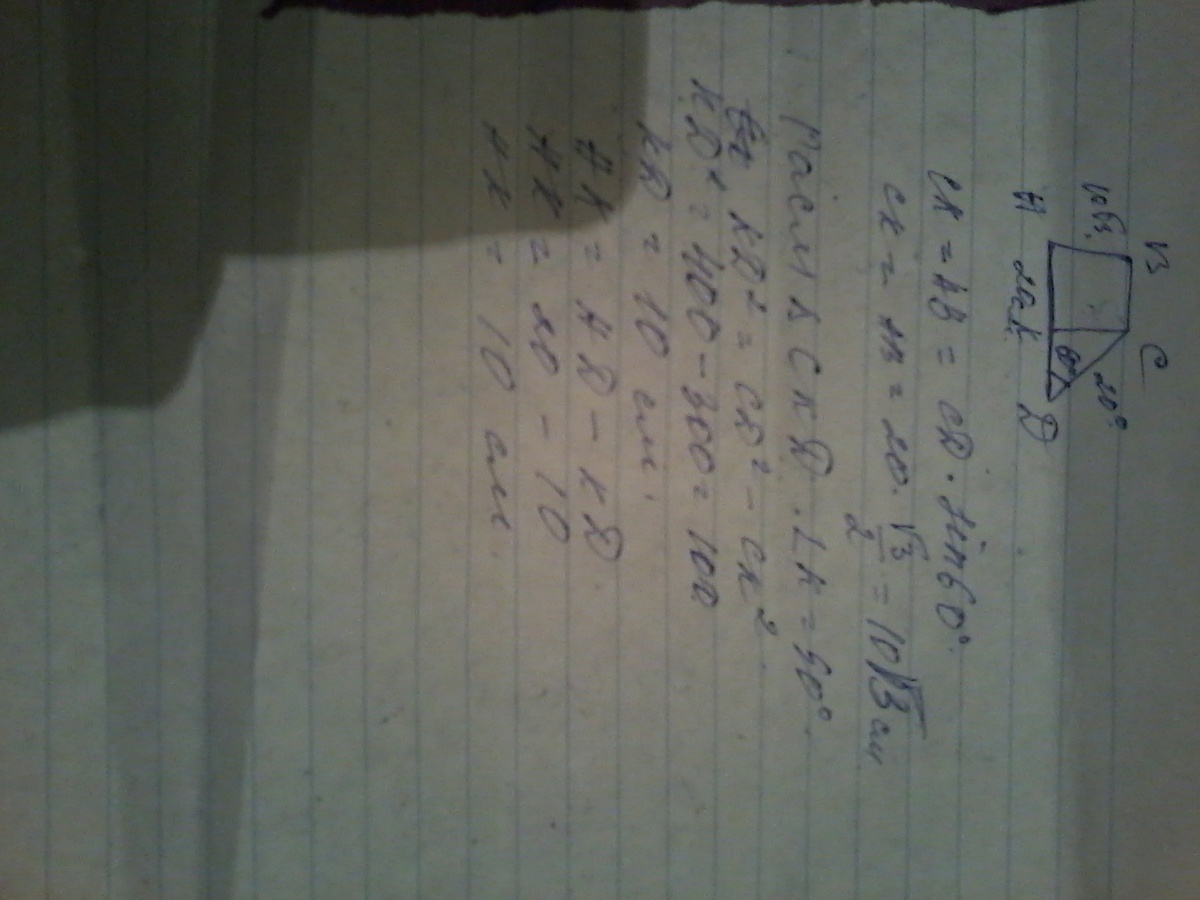 B C
10√3. 20°
60°
A 20 K D
CK = AB = CD · sin60°.
CK = AB = 20 · √3/2 = 10√3 см
Расм Δ CKD. ∠K = 90°.
KD² = CD² - CK².
KD² = 400 - 300 = 100
KD = 10 см.
AK = AD - KD
AK = 20 - 10
AK = 10 см.